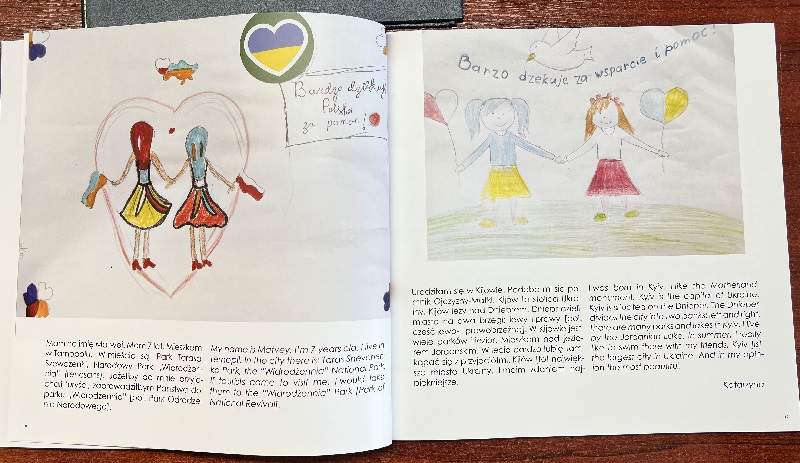 Bardzo dziękuję
Polska
za pomoc!
Mam na imię Matwiej. Mam 7 lat. Mieszkam
w Tarnopolu. W mieście są: Park Tarasa
Szewczenki, Narodowy Park „Widrodżen-
nia" (renesans). Jeżeli by do mnie przyje-
chali turyści, zaprowadziłbym Państwo do
parku „Widrodżennia" [pol. Park Odrodze-
nia Narodowego].
My name is Matvey. I'm 7 years old. I live in
Ternopil. In the city there is: Taras Shevchen-
ko Park, the "Widrodżennia" National Park.
If tourists come to visit me, I would take
them to the "Widrodżennia" Park [Park of
National Revival].
Barzo dzekuje za wsparcie i pomoc!
Urodziłam się w Kijowie. Podoba mi się po-
mnik Ojczyzny-Matki. Kijów to stolica Ukra-
iny. Kijów leży nad Dnieprem. Dniepr dzieli
miasto na dwa brzegi: lewy i prawy [pol.
część lewo- i prawobrzeżną]. W Kijowie jest
wiele parków i jezior. Mieszkam nad jezio-
rem Jordańskim. W lecie bardzo lubię tam
kąpać się z przyjaciółmi. Kijów to największe
miasto Ukrainy. I moim zdaniem naj-
piękniejsze.
I was born in Kyiv. I like the Motherland
monument. Kyiv is the capital of Ukraine.
Kyiv is situated on the Dnieper. The Dnieper
divides the city into two banks: left and right.
There are many parks and lakes in Kyiv. I live
by the Jordanian Lake. In summer, I really
like to swim there with my friends. Kyiv is
the largest city in Ukraine. And in my opin-
ion the most beautiful.
Kateryna